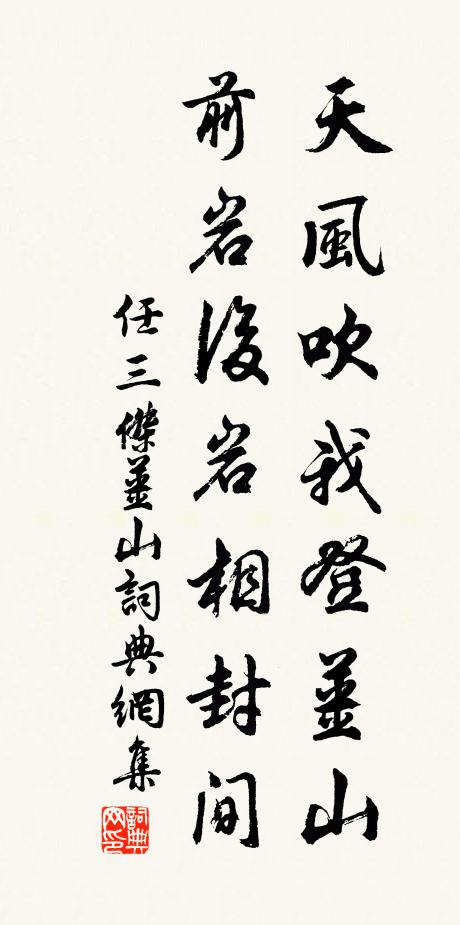 天風吹我登薑山
前岩後岩相封間
任三傑薑山詞典網集
詞典网印